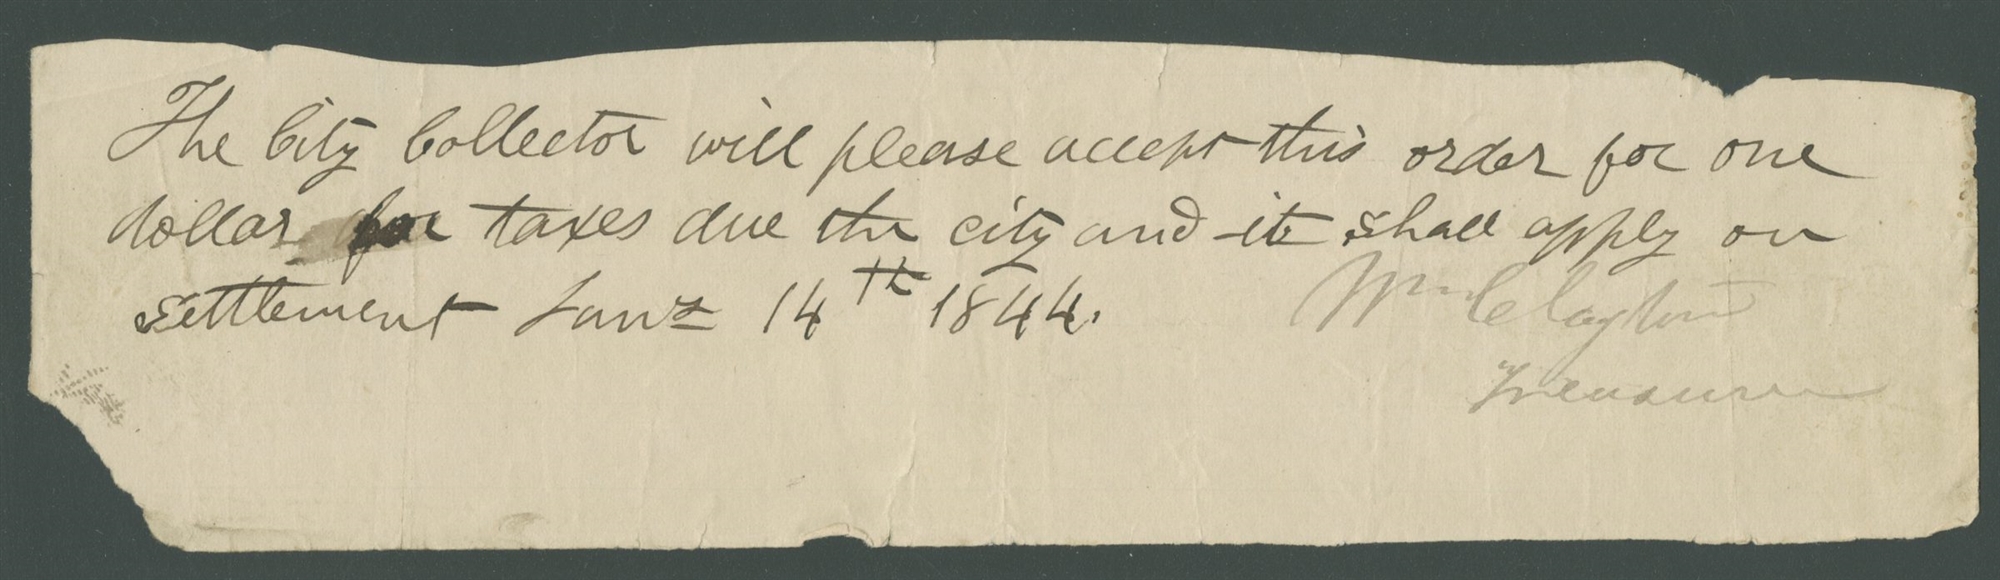 The City Collector will please accept this order for one
dollar for taxes due the city and it shall apply on
settlement Jany 14th 1844.
Wm Clayton
Treasurer